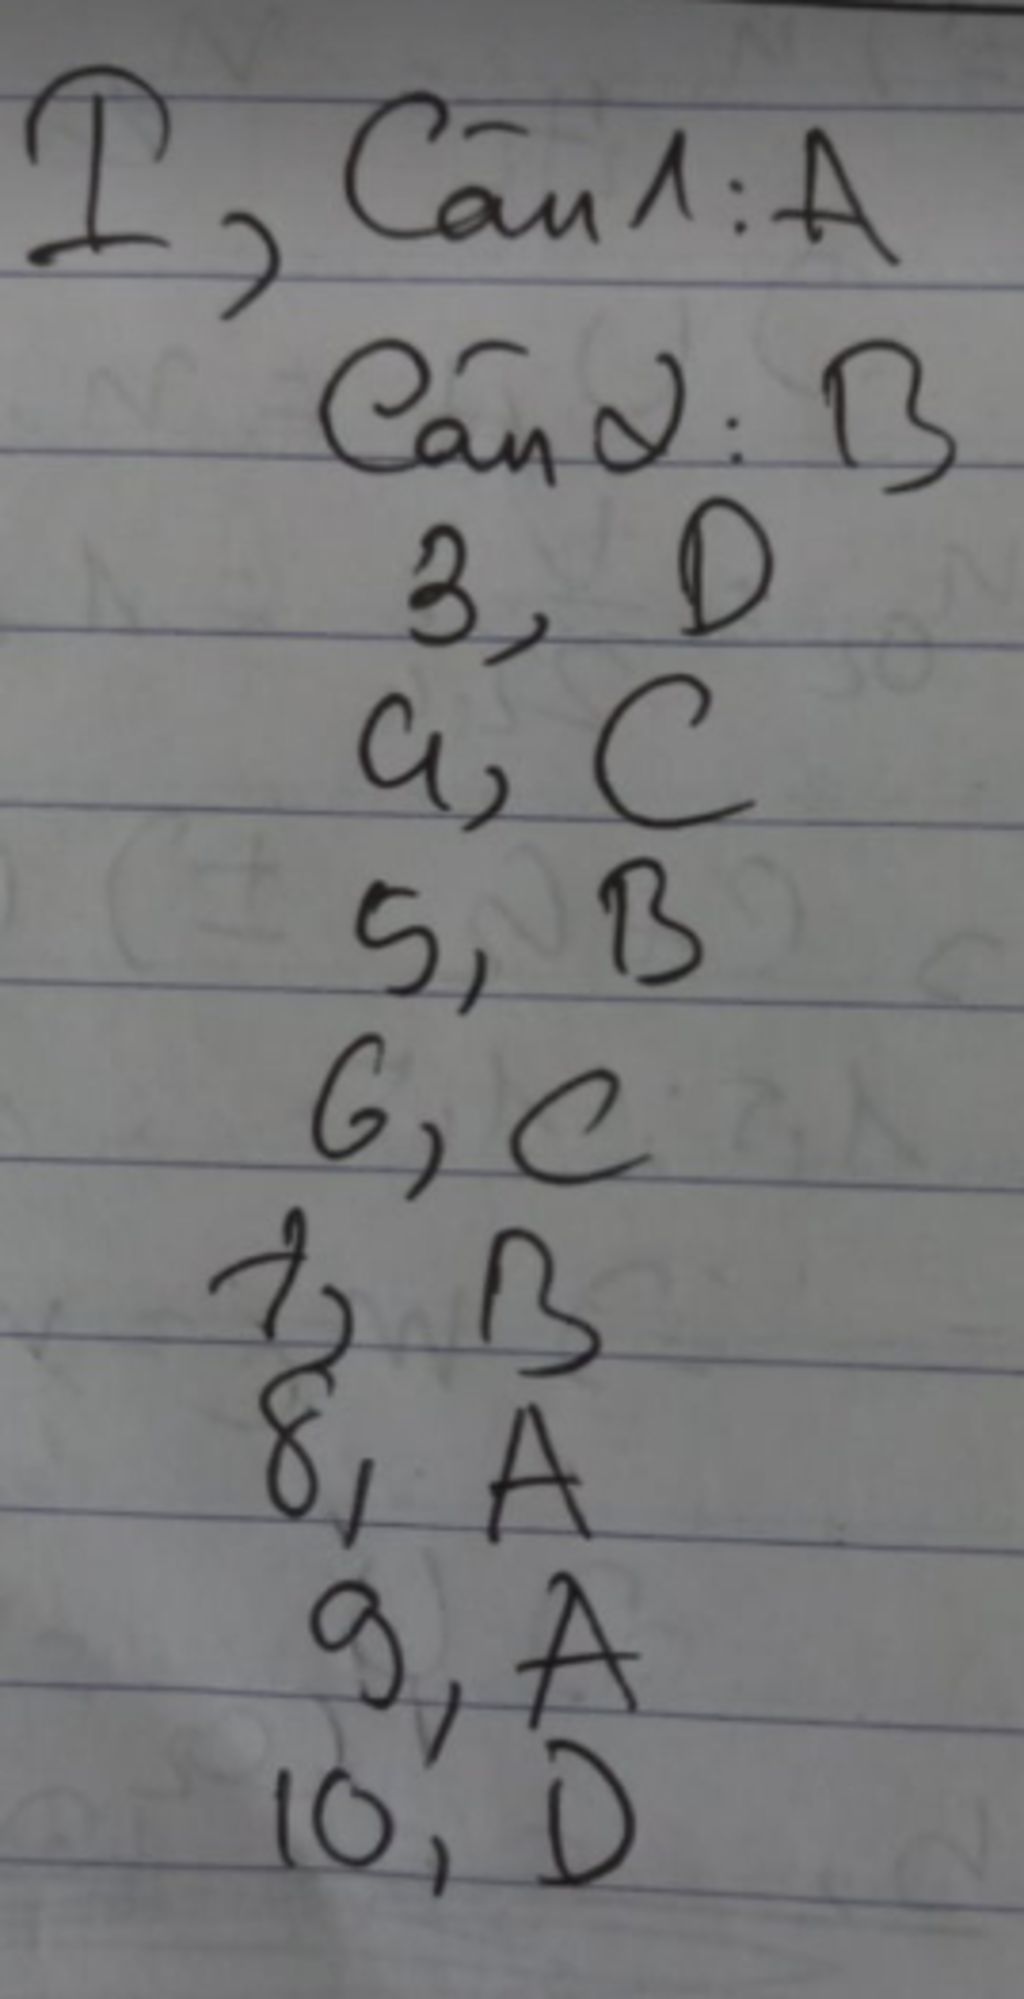 I, Câu 1: A
Câu 2: B
3, D
4, C
5, B
6, C
7, B
8, A
9, A
10, D